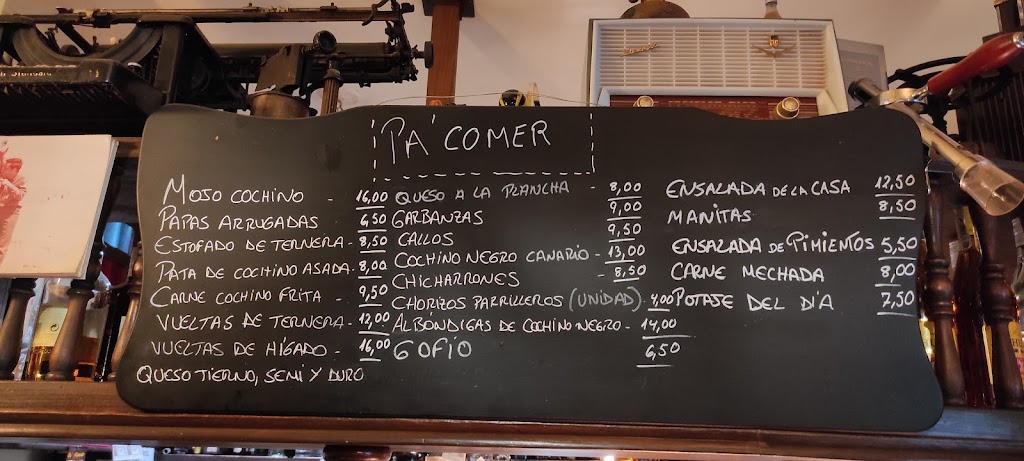 PA' COMER
MOJO COCHINO - 16,00
PAPAS ARRUGADAS 6,50
ESTOFADO DE TERNERA - 8,50
PATA DE COCHINO ASADA - 8,00
CARNE COCHINO FRITA - 9,50
VUELTAS DE TERNERA - 12,00
VUELTAS DE HÍGADO - 16,00
QUESO TIERNO, SEMI Y DURO
QUESO A LA PLANCHA - 8,00
GARBANZAS 9,00
CALLOS 9,50
COCHINO NEGRO CANARIO - 13,00
CHICHARRONES - 8,50
CHORIZOS PARRILLEROS (UNIDAD) - 4,00
ALBÓNDIGAS DE COCHINO NEGRO - 14,00
GOFIO 6,50
ENSALADA DE LA CASA 12,50
MANITAS 8,50
ENSALADA DE PIMIENTOS 5,50
CARNE MECHADA 8,00
POTAJE DEL DÍA 7,50